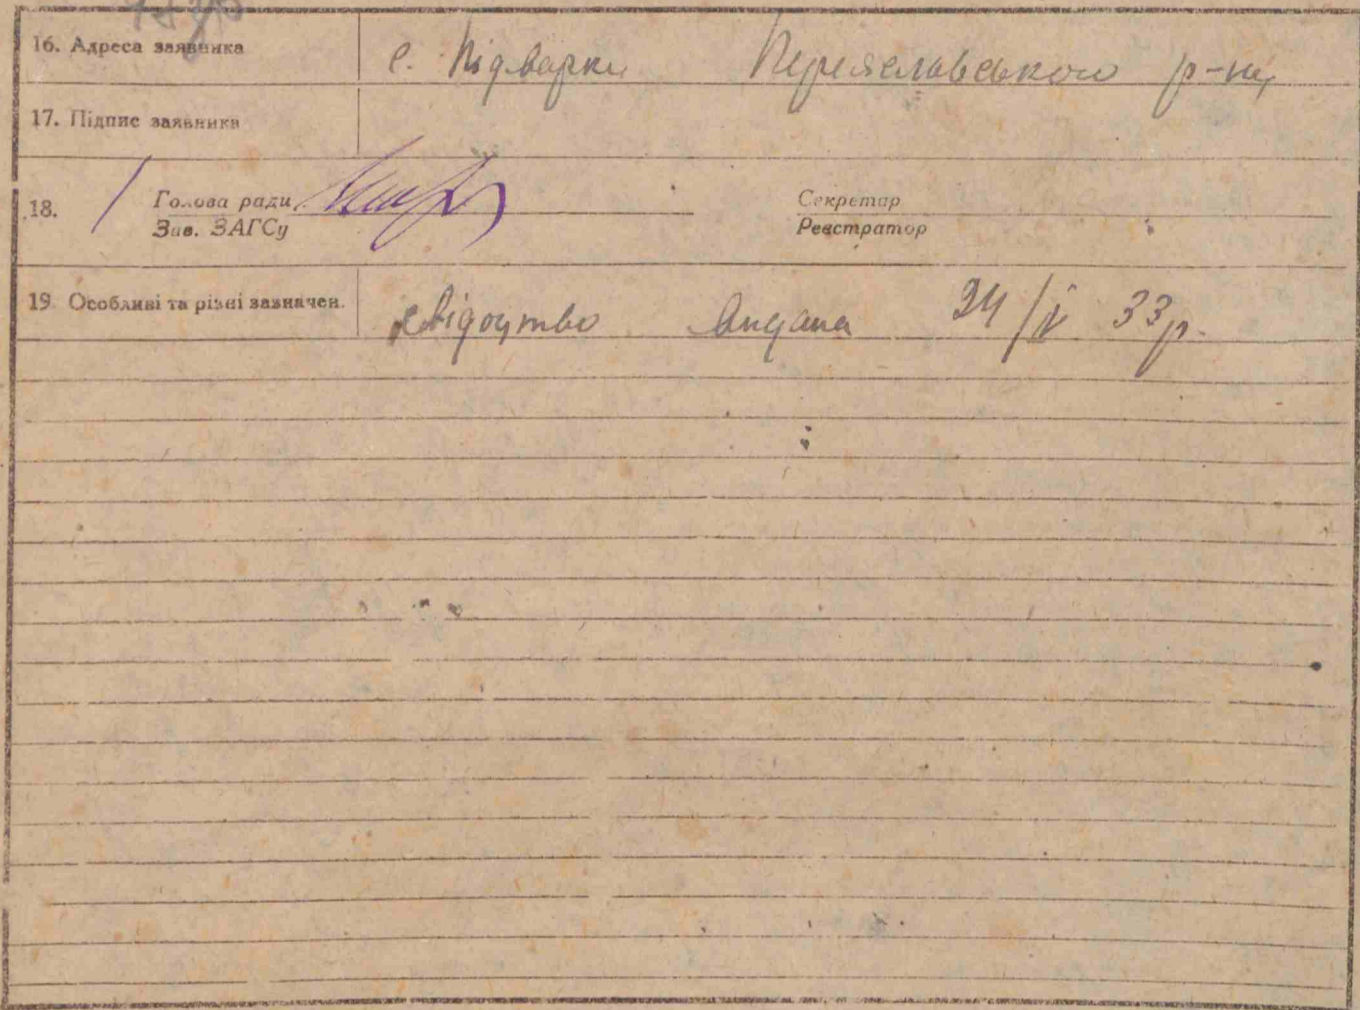 16. Адреса заявника с. Підварки Переяславського р-ну
17. Підпис заявника
18. Голова ради Секретар
Зав. ЗАГСу Реєстратор
19. Особливі та різні зазначен. свідоцтво видана 24/V 33р.